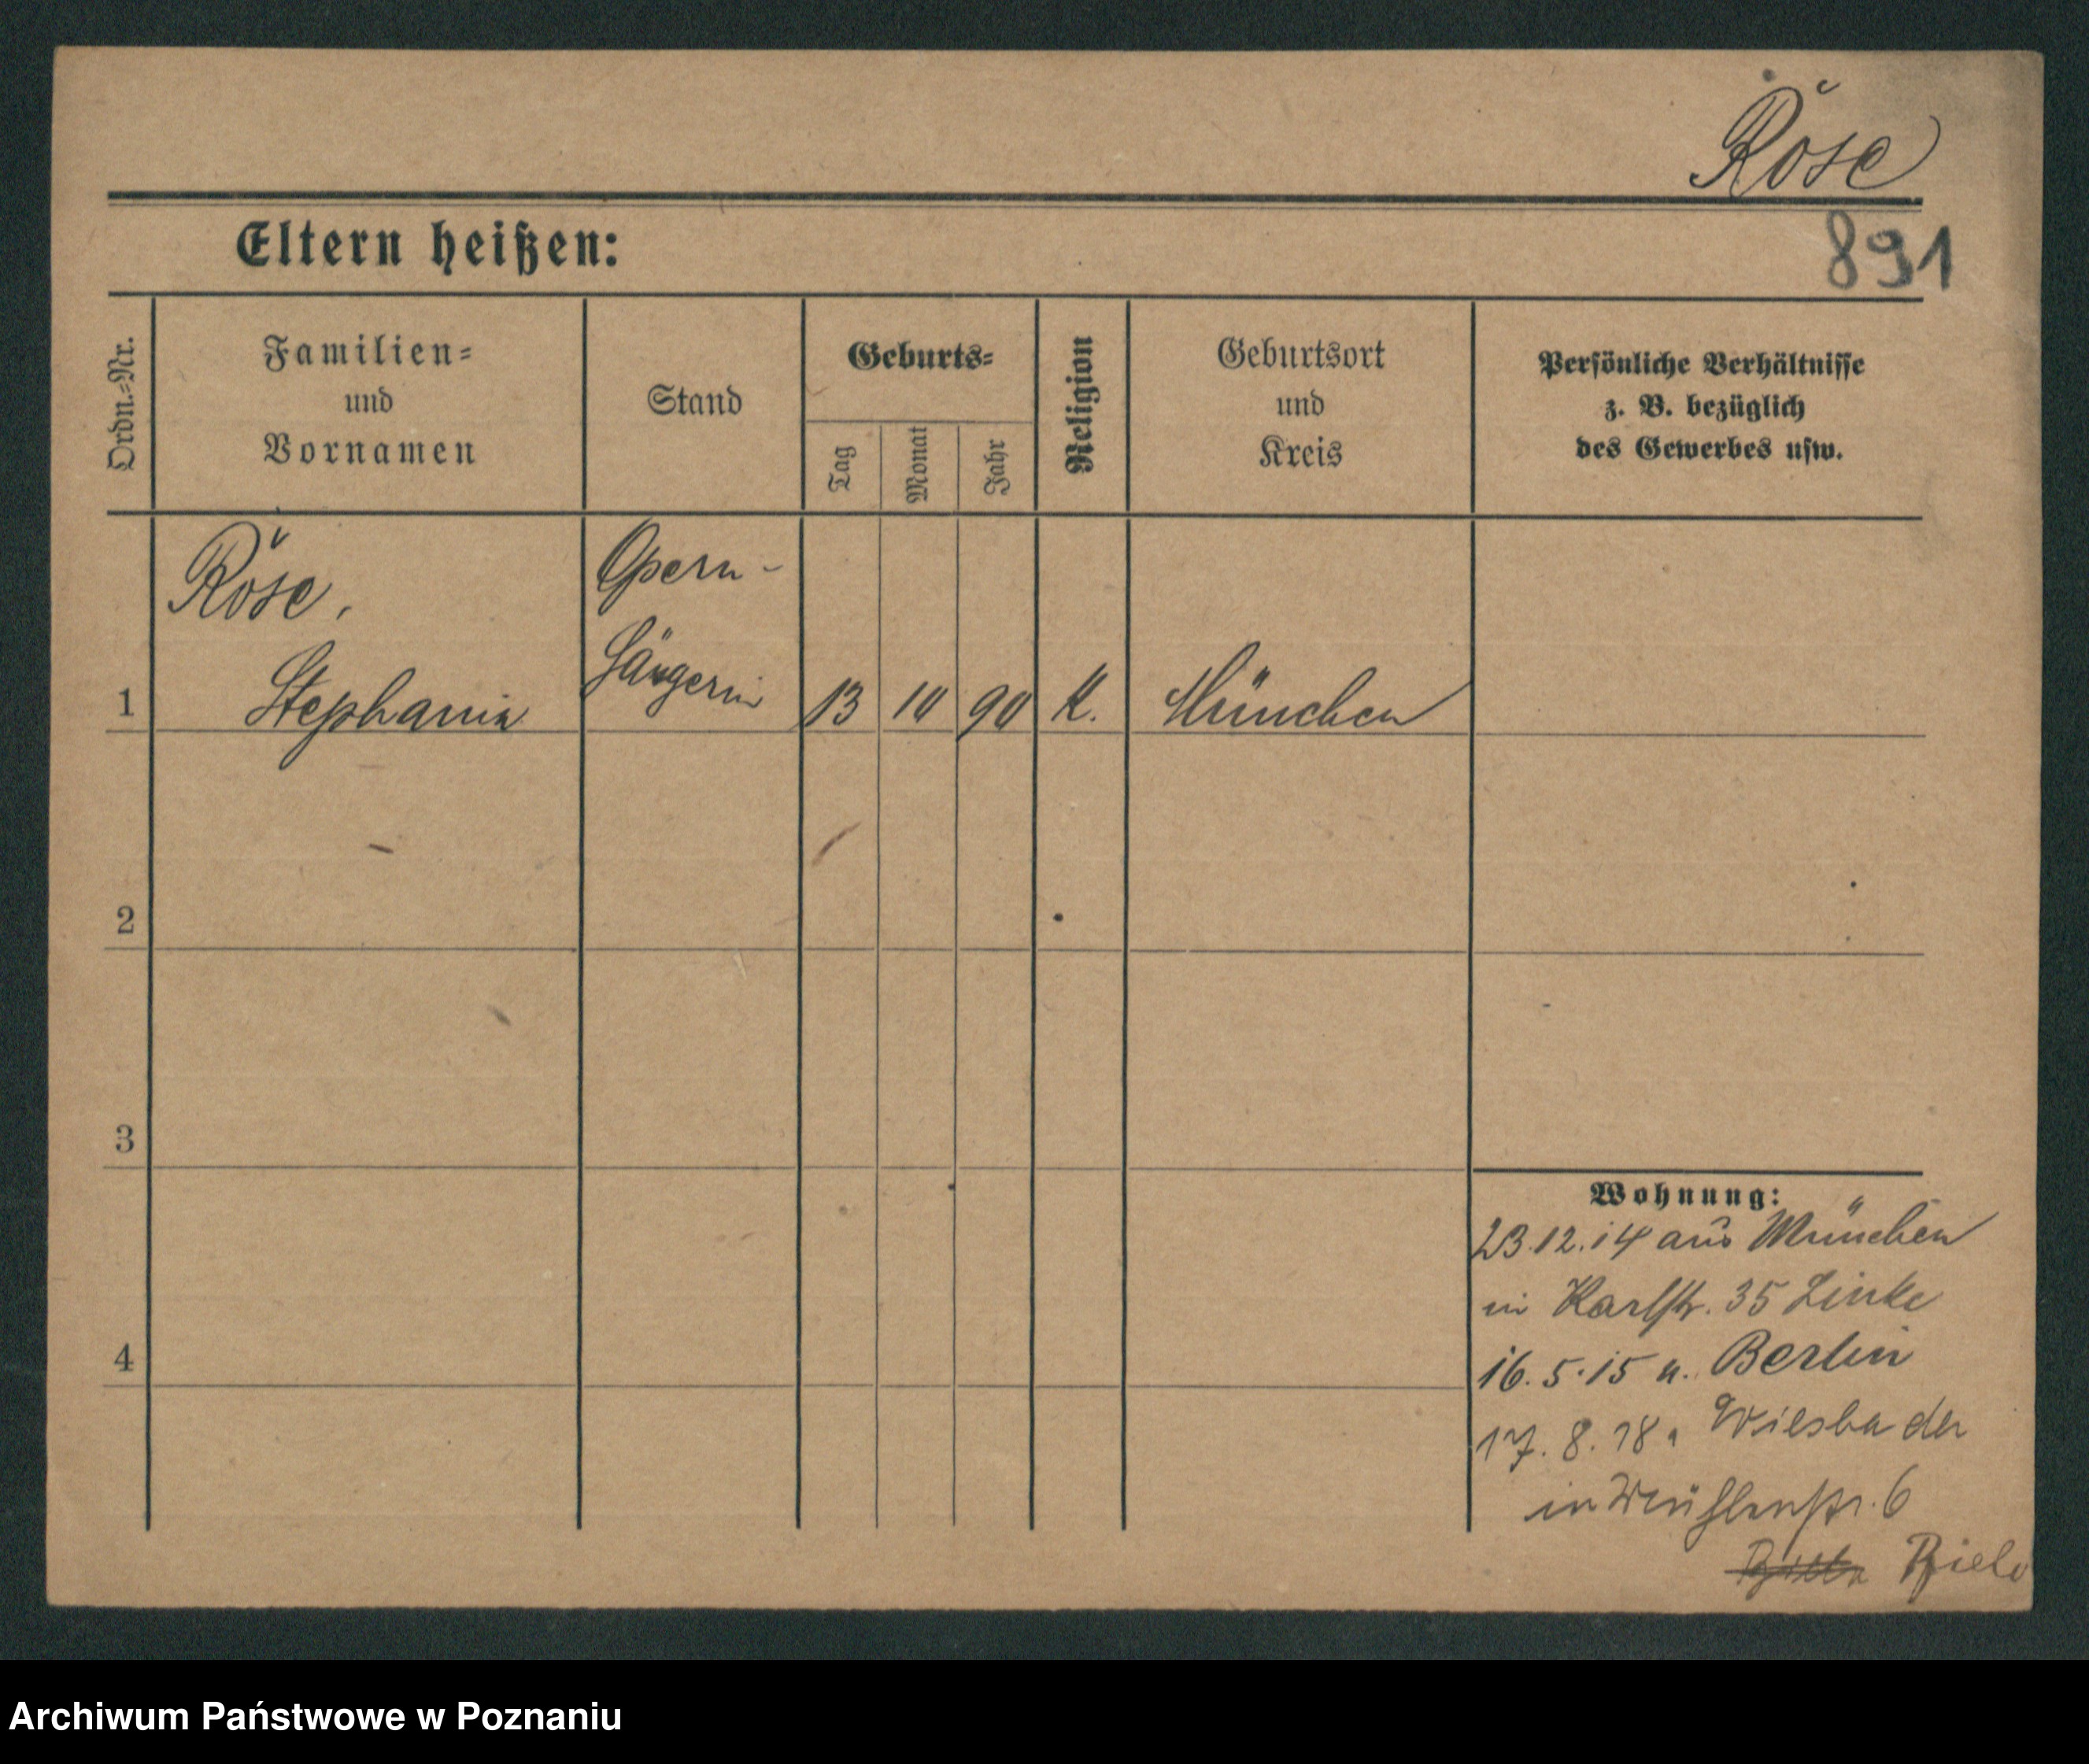 Röse
891
Eltern heißen:
Ordn.-Nr.
Familien-
und
Vornamen
Stand
Geburts-
Tag
Monat
Jahr
Religion
Geburtsort
und
Kreis
Persönliche Verhältnisse
z. B. bezüglich
des Gewerbes usw.
1
Röse,
Stephanie
Opern-
Sängerin
13
10
90
K.
München
2
3
4
Wohnung:
23.12.14 aus München
in Karlstr. 35 Linke
16.5.15 n. Berlin
17.8.18 Wiesbaden
in Mühlenstr. 6